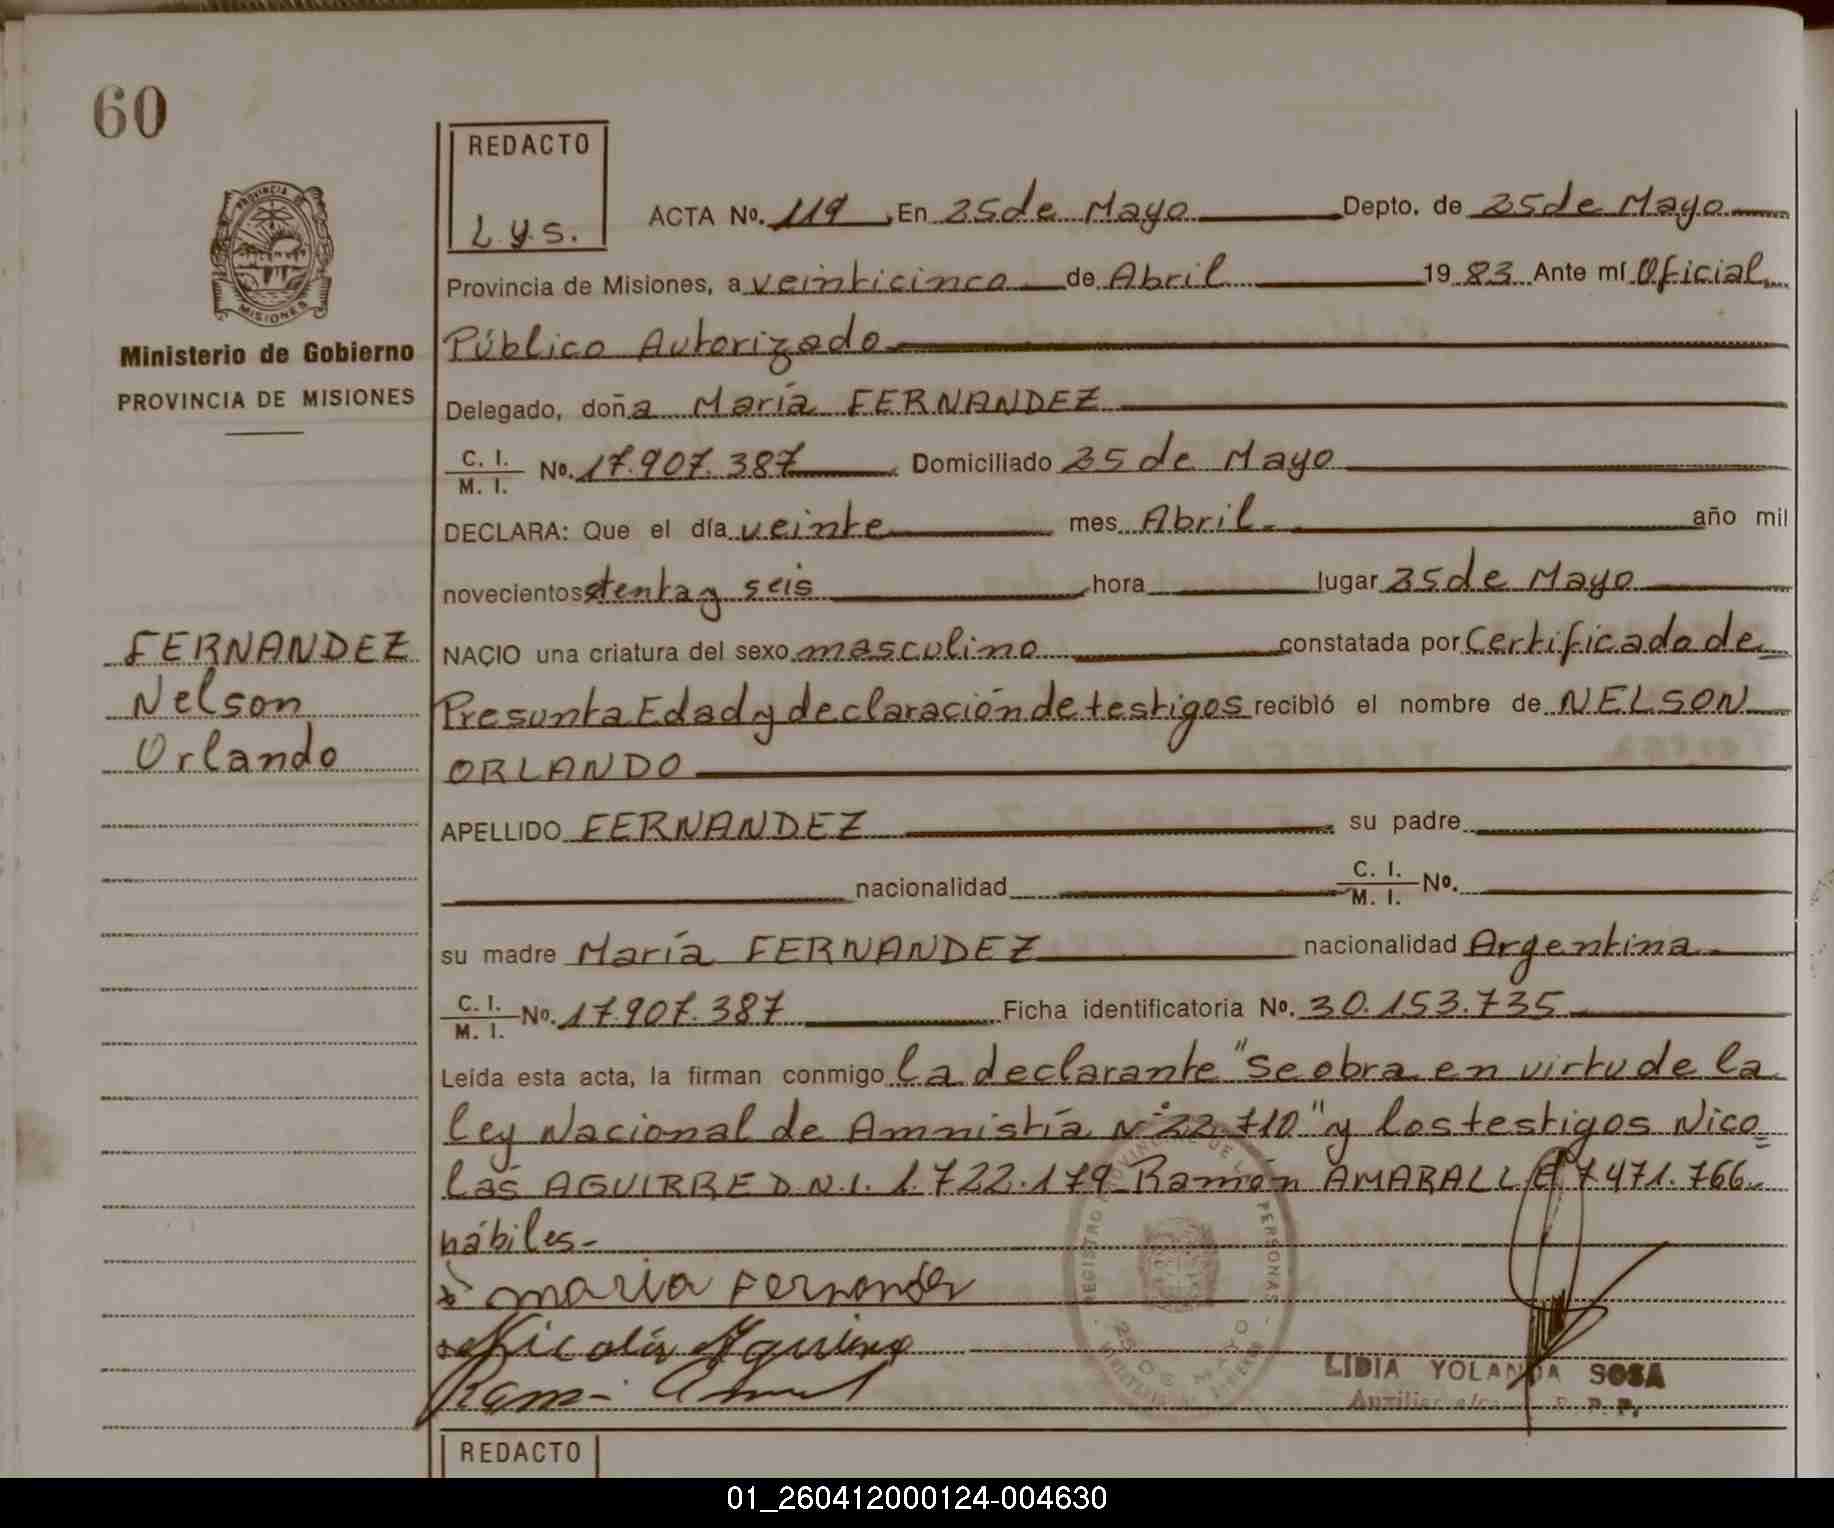 60
REDACTO
L.Y.S.
PROVINCIA DE
MISIONES
Ministerio de Gobierno
PROVINCIA DE MISIONES
ACTA No. 119, En 25 de Mayo Depto. de 25 de Mayo
Provincia de Misiones, a veinticinco de Abril 1983 Ante mí Oficial
Público Autorizado
Delegado, doña María FERNANDEZ
C. I. / M. I. No. 17.907.387 Domiciliado 25 de Mayo
DECLARA: Que el día veinte mes Abril año mil
novecientos setenta y seis hora lugar 25 de Mayo
NACIO una criatura del sexo masculino constatada por Certificado de
Presunta Edad y declaración de testigos recibió el nombre de NELSON
ORLANDO
FERNANDEZ
Nelson
Orlando
APELLIDO FERNANDEZ su padre
nacionalidad C. I. / M. I. No.
su madre María FERNANDEZ nacionalidad Argentina
C. I. / M. I. No. 17.907.387 Ficha identificatoria No. 30.153.735
Leída esta acta, la firman conmigo la declarante "Se obra en virtude la
ley Nacional de Amnistía N° 22.710" y los testigos Nico=
lás AGUIRRE D.N.I. 1.722.179 Ramón AMARAL L.E. 7.471.766
hábiles.-
maria Fernandez
Nicolás Aguirre
LIDIA YOLANDA SOSA
Auxiliar
REGISTRO PROVINCIAL DE LAS PERSONAS
25 DE MAYO
REDACTO
01_260412000124-004630